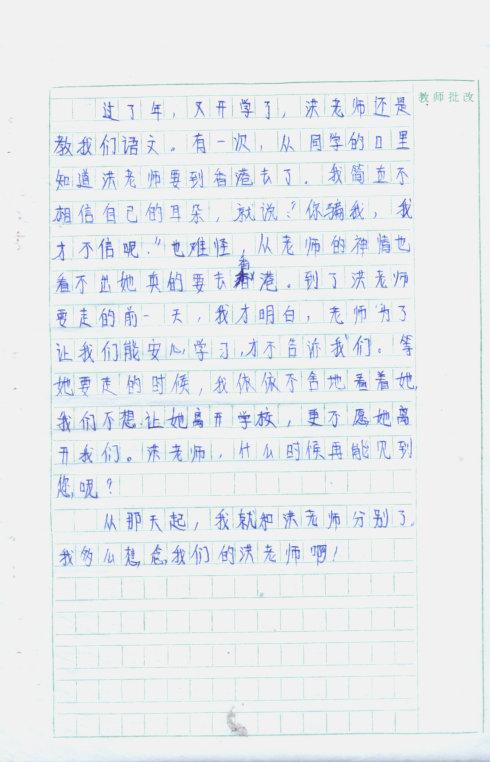 教师批改
过了年，又开学了，洪老师还是
教我们语文。有一次，从同学的口里
知道洪老师要到香港去了。我简直不
相信自己的耳朵，就说：“你骗我，我
才不信呢。”也难怪，从老师的神情也
看不出她真的要去香港。到了洪老师
要走的前一天，我才明白，老师为了
让我们能安心学习，才不告诉我们。等
她要走的时候，我依依不舍地看着她，
我们不想让她离开学校，更不愿她离
开我们。洪老师，什么时候再能见到
您呢？
从那天起，我就和洪老师分别了，
我多么想念我们的洪老师啊！